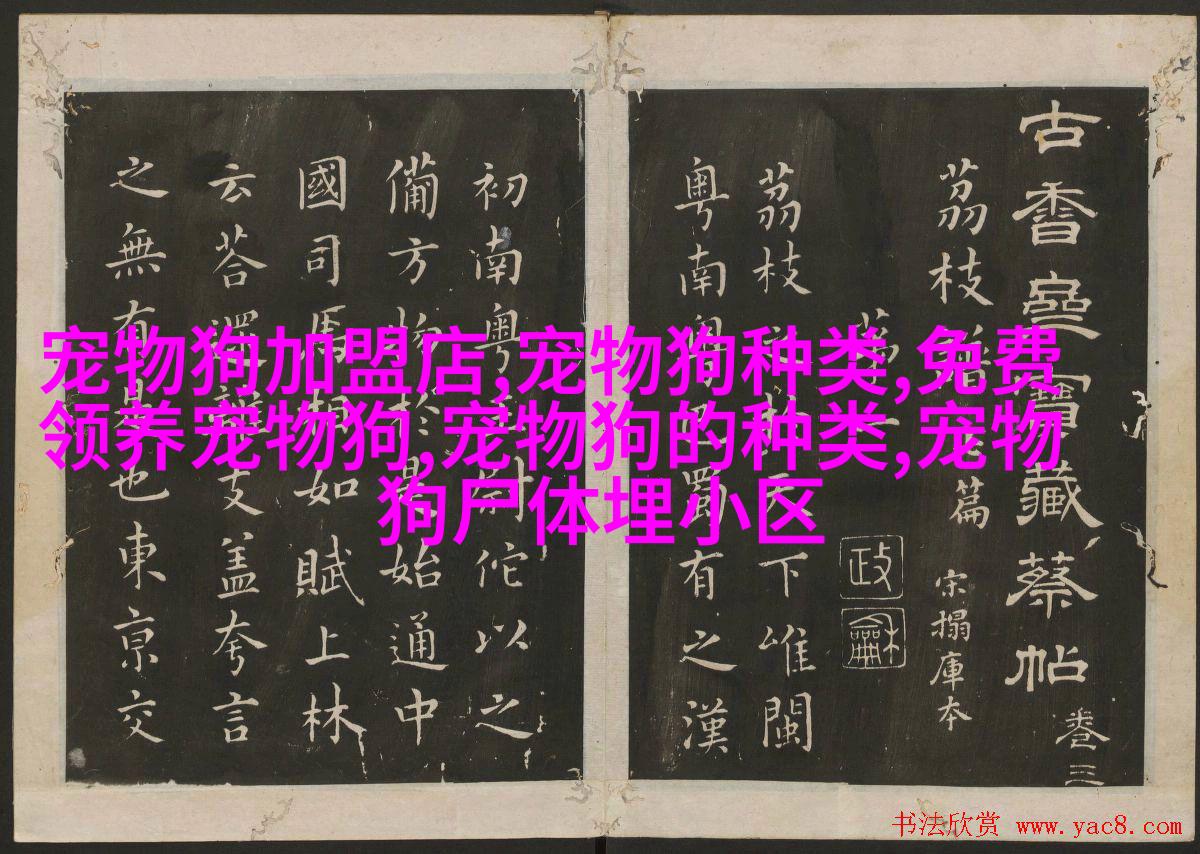 宠物狗加盟店,宠物狗种类,免费
领养宠物狗,宠物狗的种类,宠物
狗尸体埋小区
古香齋寶藏蔡帖 卷三
荔枝譜篇 宋搨庫本
第
政龢
荔枝之於天下唯閩
粵南粵巴蜀有之漢
初南粵王尉佗以之
備方物於是始通中
國司馬相如賦上林
云荅遝離支盖夸言
之無有是也東京交
书法欣赏 www.yac8.com